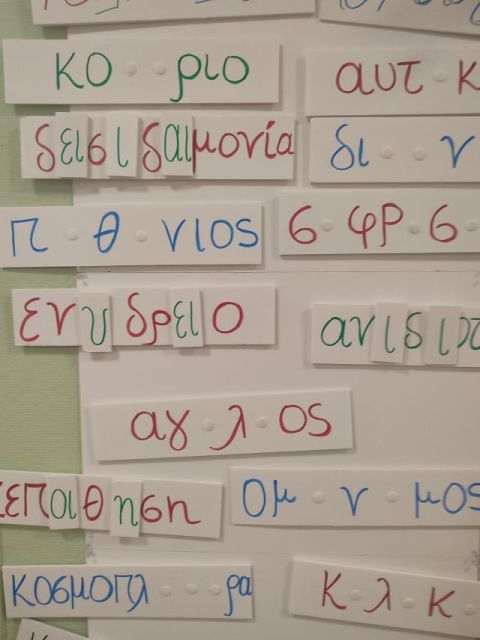 κο · · ριο
αυτ · κ
δεισιδαιμονία
δι · · ν
π · θ · νιος
σ · φρ · σ ·
ενυδρειο
ανιδιοτ
αγ · λ · ος
επαιθηση
ομ · ν · μος
κοσμοπλ · · · ρα
κ · λ · κ ·